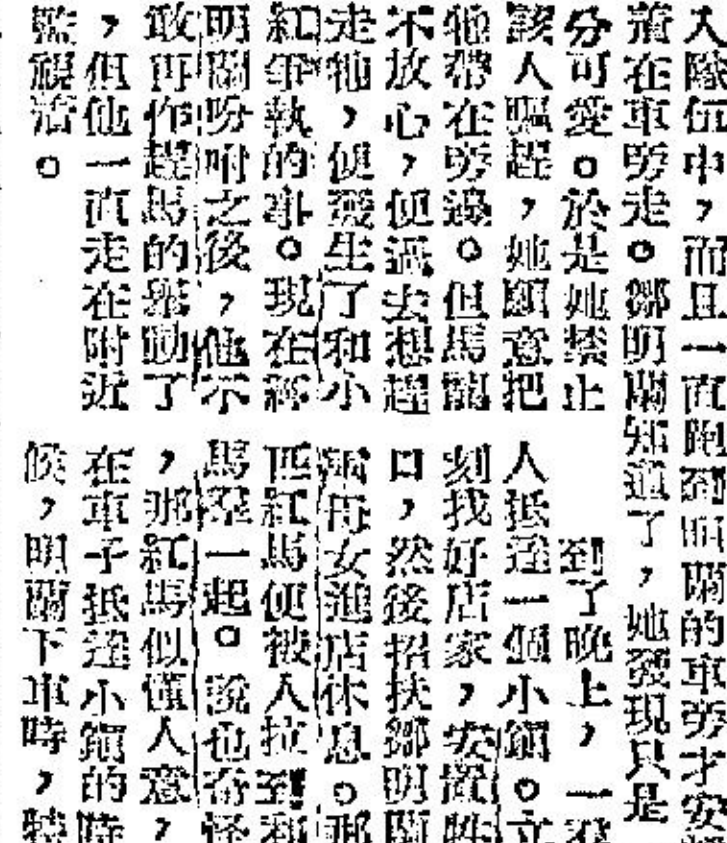 入隊伍中，而且一直跑到明蘭的車旁才安
着在車旁走。鄒明蘭知道了，她發現只是
分可愛。於是她禁止
該人驅趕，她願意把
牠帶在旁邊。但馬龍
不放心，便過去想趕
走牠，便發生了和小
紅爭執的事。現在經
明蘭吩咐之後，他不
敢再作趕馬的舉動了
，但他一直走在附近
監視着。
到了晚上，一眾
人抵達一個小鎮。立
刻找好店家，安置牲
口，然後招扶鄒明蘭
兩母女進店休息。那
匹紅馬便被人拉到和
馬羣一起。說也奇怪
，那紅馬似懂人意，
在車子抵達小鎮的時
候，明蘭下車時，特